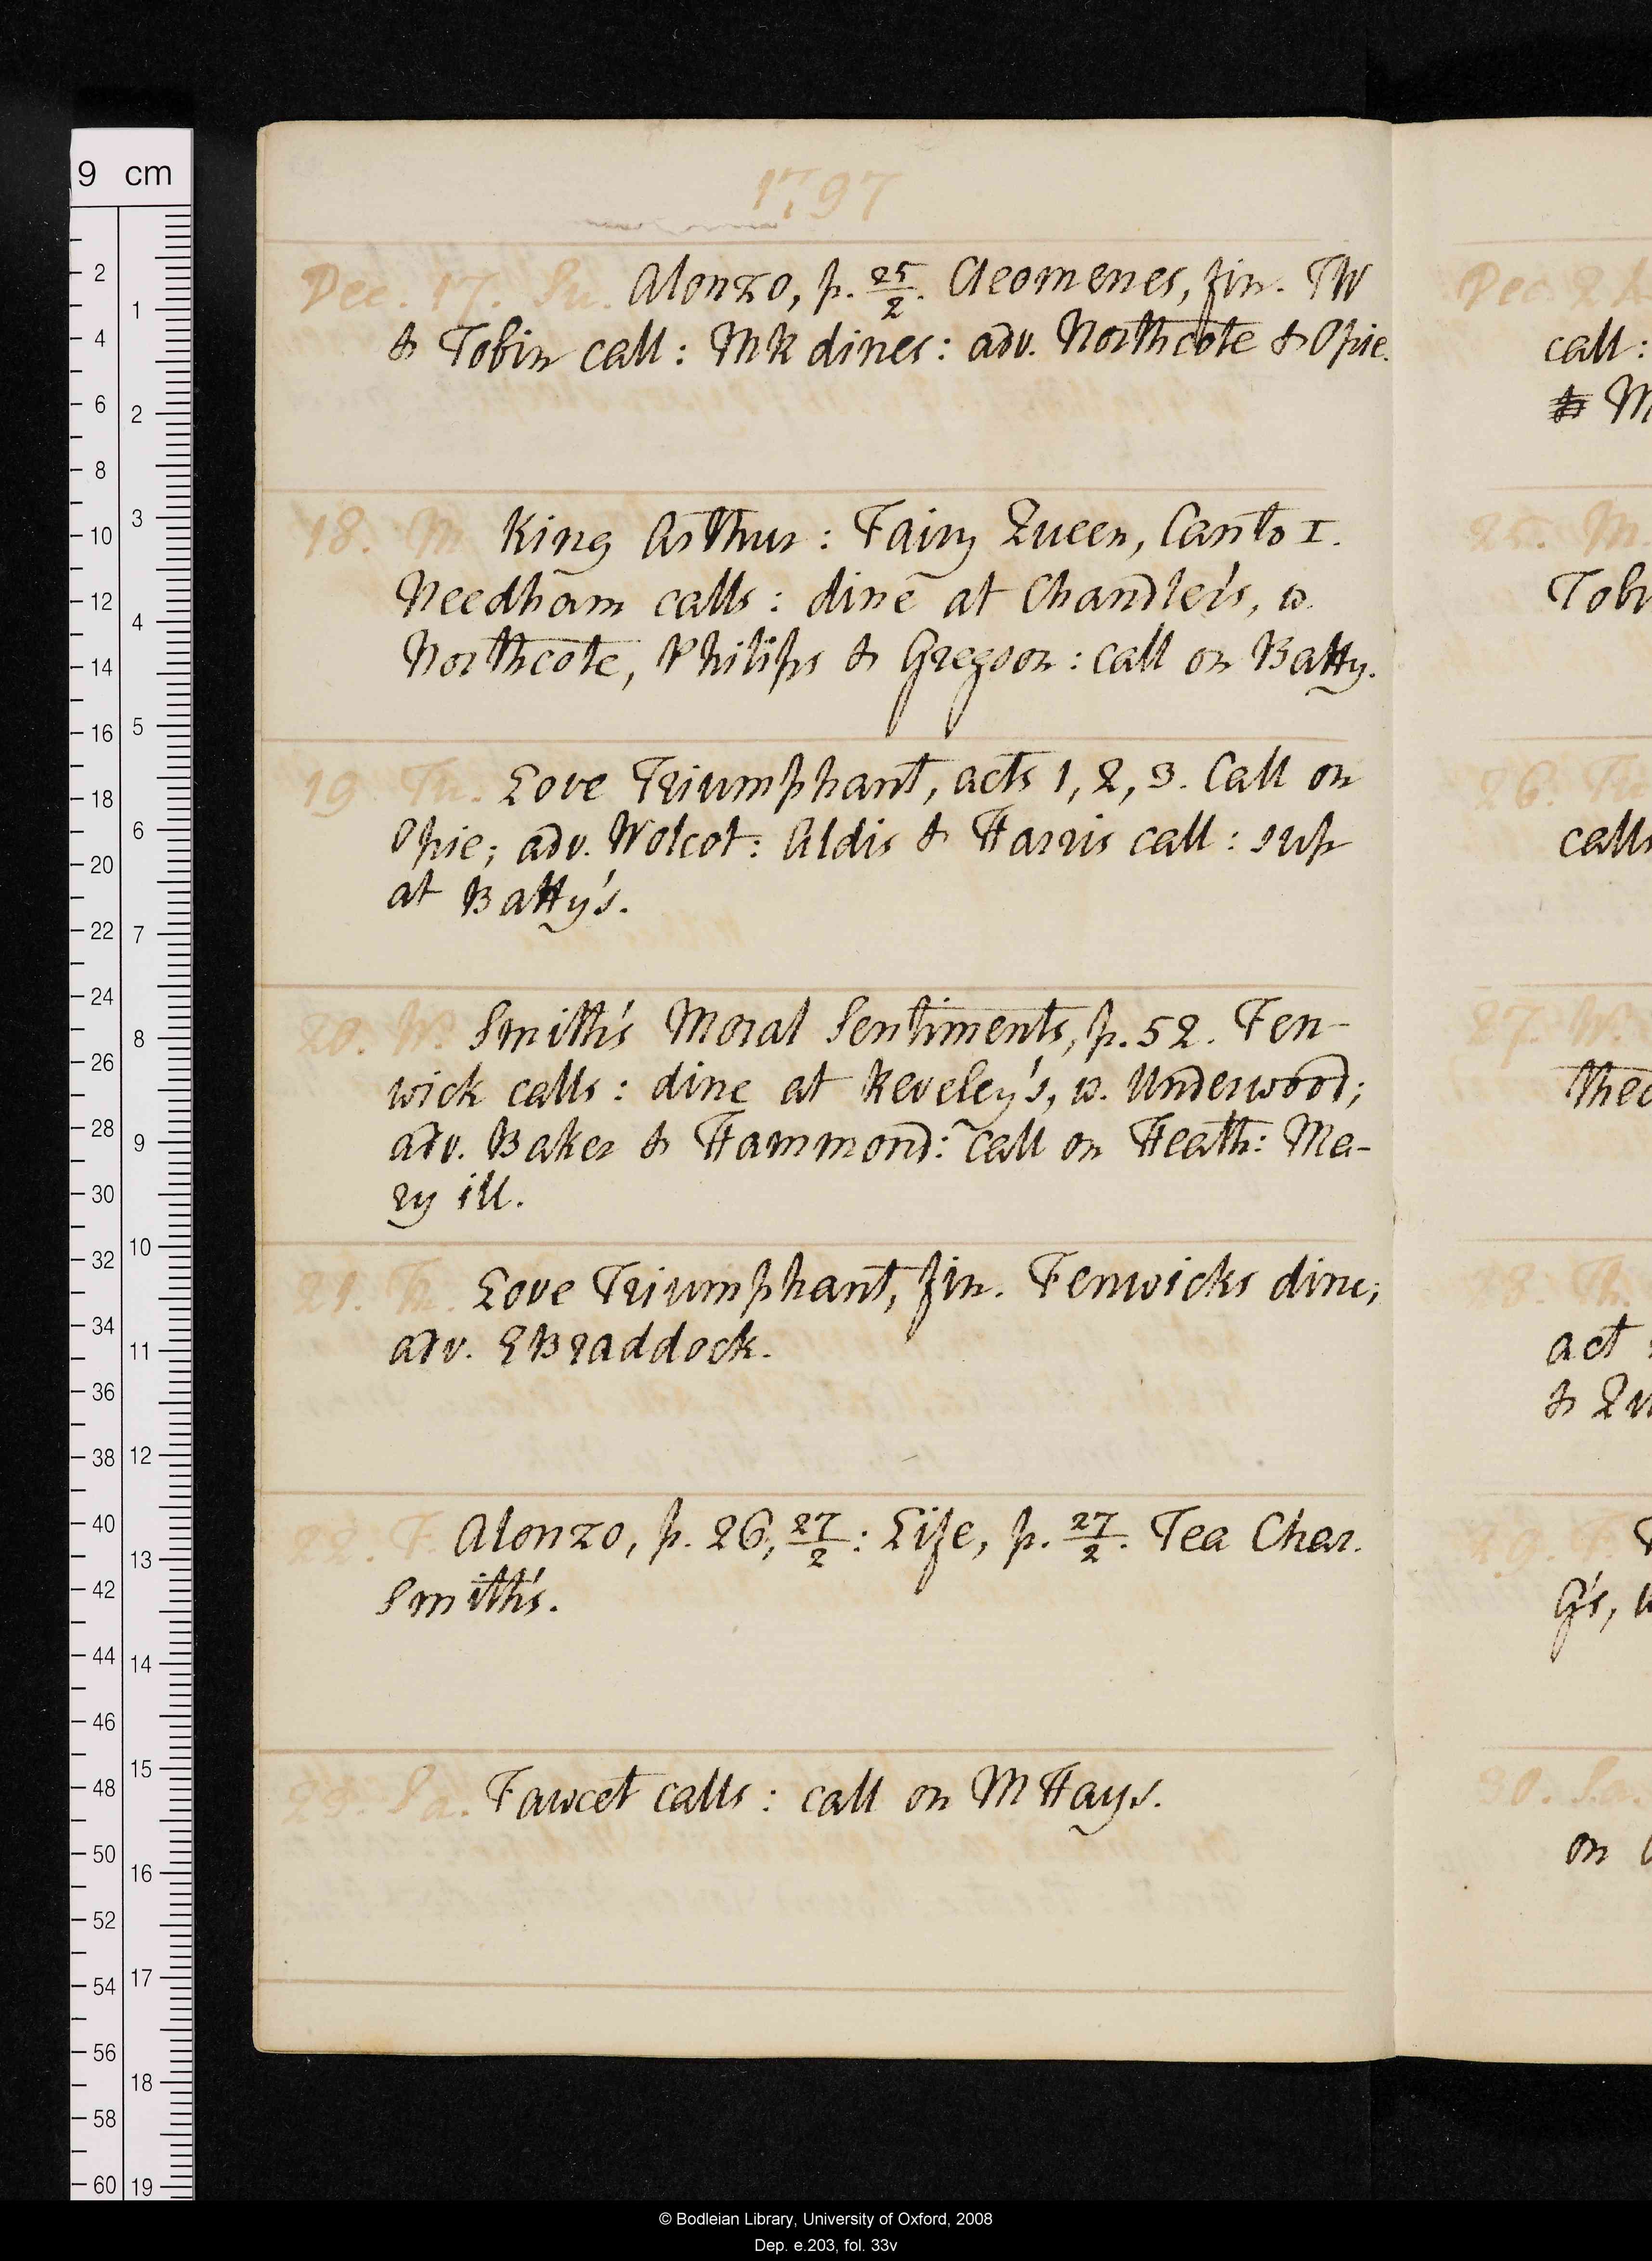 1797
Dec. 17. Su. Alonzo, p. 25/2. Cleomenes, fin. TW
& Tobin call: MR dines: adv. Northcote & Opie.
18. M. King Arthur: Fairy Queen, Canto I.
Needham calls: dine at Chandler's, w.
Northcote, Philips & Gregson: call on Batty.
19. Tu. Love Triumphant, acts 1, 2, 3. Call on
Opie; adv. Wolcot: Aldis & Harris call: sup
at Batty's.
20. W. Smith's Moral Sentiments, p. 52. Fen-
wick calls: dine at Reveley's, w. Underwood;
adv. Baker & Hammond: call on Heath: Ma-
ry ill.
21. Th. Love Triumphant, fin. Fenwicks dine;
adv. E Braddock.
22. F. Alonzo, p. 26, 27/2: Life, p. 27/2. Tea Char.
Smith's.
23. Sa. Fawcet calls: call on M Hays.
Dec. 24
call:
& M
25. M.
Tobi
26. Tu
calls
27. W.
thea
28. Th.
act
& Qu
29. F.
G's, w
30. Sa.
on
9 cm
2
4
6
8
10
12
14
16
18
20
22
24
26
28
30
32
34
36
38
40
42
44
46
48
50
52
54
56
58
60
1
2
3
4
5
6
7
8
9
10
11
12
13
14
15
16
17
18
19
© Bodleian Library, University of Oxford, 2008
Dep. e.203, fol. 33v